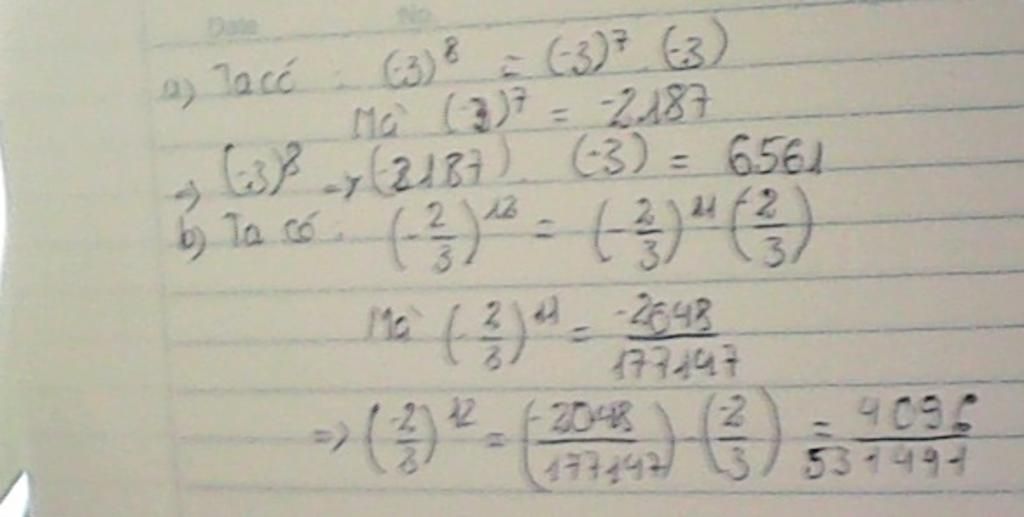 Date No.
a) Ta có : (-3)⁸ = (-3)⁷ . (-3)
Mà (-3)⁷ = -2187
=> (-3)⁸ => (-2187) . (-3) = 6561
b) Ta có : (-2/3)¹² = (-2/3)¹¹ (-2/3)
Mà (-2/3)¹¹ = -2048/177147
=> (-2/3)¹² = (-2048/177147) . (-2/3) = 4096/531441